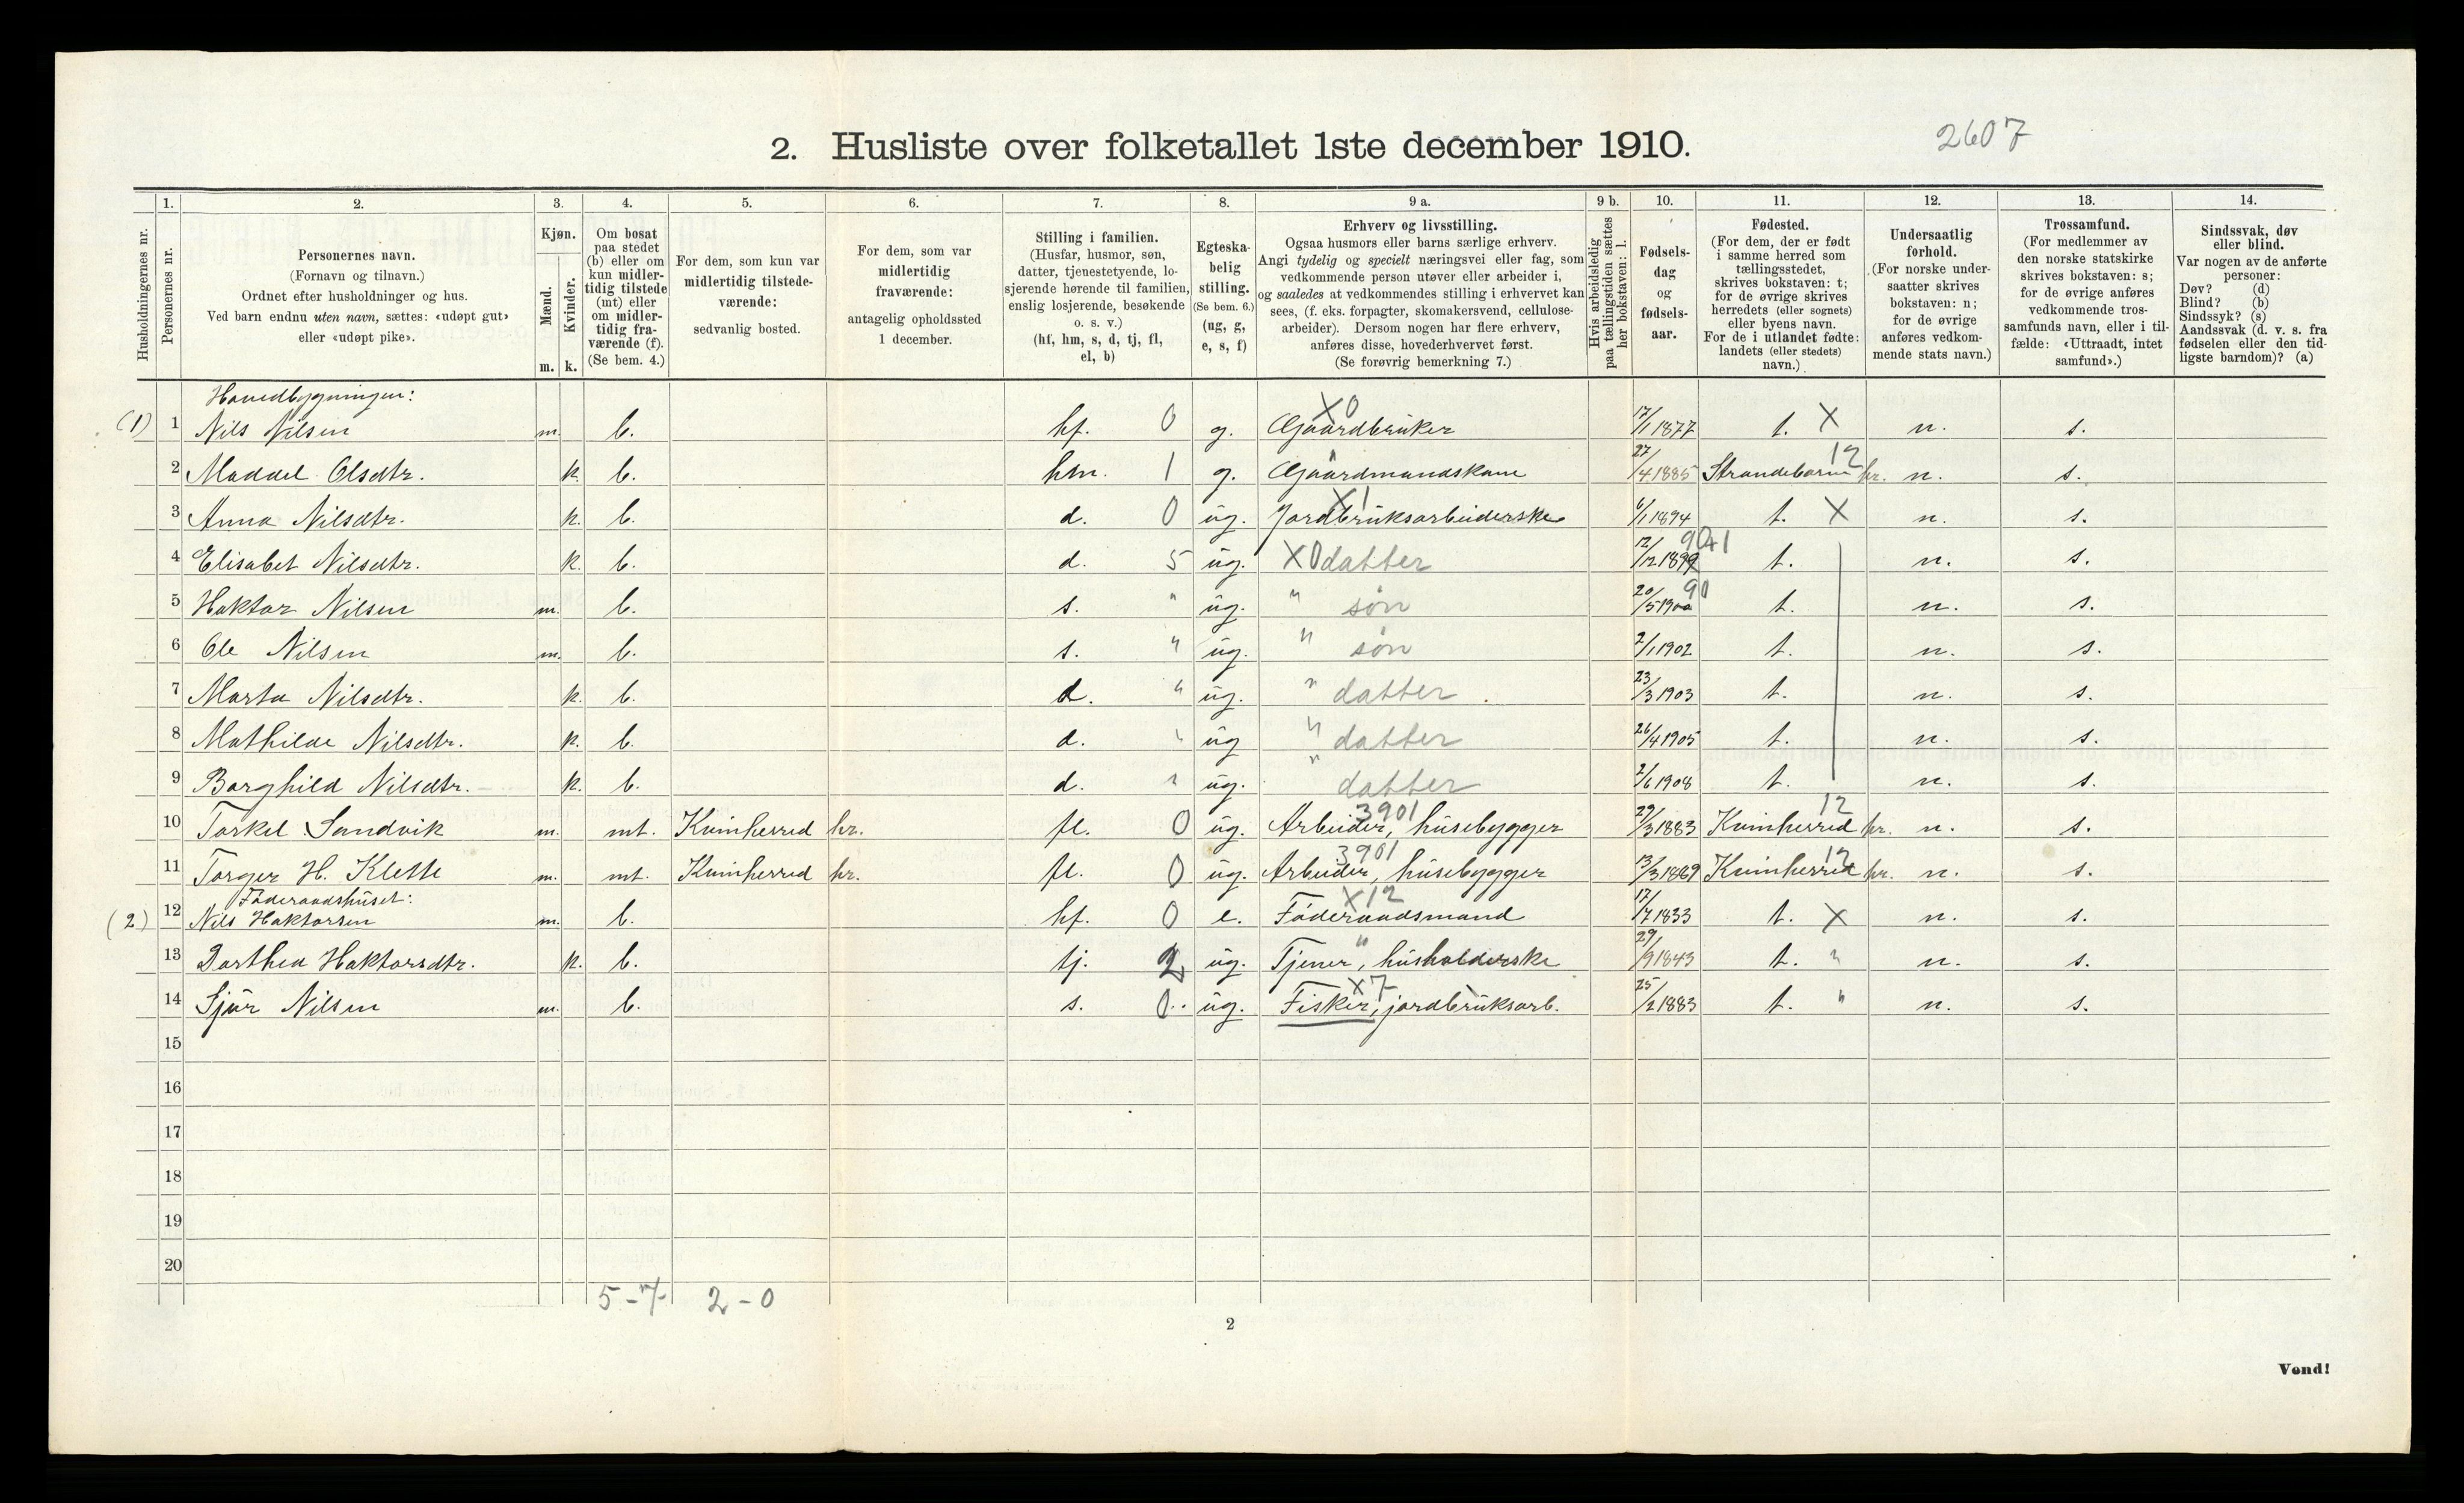 2607
2. Husliste over folketallet 1ste december 1910.
Husholdningernes nr.
1. Personernes nr.
2. Personernes navn. (Fornavn og tilnavn.) Ordnet efter husholdninger og hus. Ved barn endnu uten navn, sættes: «udøpt gut» eller «udøpt pike».
3. Kjøn. Mænd. m. Kvinder. k.
4. Om bosat paa stedet (b) eller om kun midlertidig tilstede (mt) eller om midlertidig fraværende (f). (Se bem. 4.)
5. For dem, som kun var midlertidig tilstedeværende: sedvanlig bosted.
6. For dem, som var midlertidig fraværende: antagelig opholdssted 1 december.
7. Stilling i familien. (Husfar, husmor, søn, datter, tjenestetyende, losjerende hørende til familien, enslig losjerende, besøkende o. s. v.) (hf, hm, s, d, tj, fl, el, b)
8. Egteskabelig stilling. (Se bem. 6.) (ug, g, e, s, f)
9 a. Erhverv og livsstilling. Ogsaa husmors eller barns særlige erhverv. Angi tydelig og specielt næringsvei eller fag, som vedkommende person utøver eller arbeider i, og saaledes at vedkommendes stilling i erhvervet kan sees, (f. eks. forpagter, skomakersvend, cellulosearbeider). Dersom nogen har flere erhverv, anføres disse, hovederhvervet først. (Se forøvrig bemerkning 7.)
9 b. Hvis arbeidsledig paa tællingstiden sættes her bokstaven: l.
10. Fødselsdag og fødselsaar.
11. Fødested. (For dem, der er født i samme herred som tællingsstedet, skrives bokstaven: t; for de øvrige skrives herredets (eller sognets) eller byens navn. For de i utlandet fødte: landets (eller stedets) navn.)
12. Undersaatlig forhold. (For norske undersaatter skrives bokstaven: n; for de øvrige anføres vedkommende stats navn.)
13. Trossamfund. (For medlemmer av den norske statskirke skrives bokstaven: s; for de øvrige anføres vedkommende trossamfunds navn, eller i tilfælde: «Uttraadt, intet samfund».)
14. Sindssvak, døv eller blind. Var nogen av de anførte personer: Døv? (d) Blind? (b) Sindssyk? (s) Aandssvak (d. v. s. fra fødselen eller den tidligste barndom)? (a)
Hovedbygningen:
(1) 1 Nils Nilsen m. b. hf. 0 g. X0 Gaardbruker 17/1 1877 t. X n. s.
2 Maddel Olsdtr. k. b. hm. 1 g. " Gaardmandskone 27/4 1885 Strandebarm hr. 12 n. s.
3 Anna Nilsdtr. k. b. d. 0 ug. X1 Jordbruksarbeiderske 6/1 1894 t. X n. s.
4 Elisabet Nilsdtr. k. b. d. 5 ug. X0 datter 12/12 1899 9041 t. n. s.
5 Haktor Nilsen m. b. s. " ug. " søn 20/5 1900 90 t. n. s.
6 Ole Nilsen m. b. s. " ug. " søn 2/1 1902 t. n. s.
7 Marta Nilsdtr. k. b. d. " ug. " datter 23/3 1903 t. n. s.
8 Mathilde Nilsdtr. k. b. d. " ug " datter 26/4 1905 t. n. s.
9 Borghild Nilsdtr. k. b. d. " ug. " datter 2/6 1908 t. n. s.
10 Torkel Sandvik m. mt. Kvinherred hr. fl. 0 ug. 3901 Arbeider, husebygger 29/3 1883 Kvinherred hr. 12 n. s.
11 Torger H. Klette m. mt. Kvinherred hr. fl. 0 ug. 3901 Arbeider, husebygger 13/3 1869 Kvinherred hr. 12 n. s.
Føderaadshuset:
(2) 12 Nils Haktorsen m. b. hf. 0 e. X12 Føderaadsmand 17/7 1833 t. X n. s.
13 Dorthea Haktorsdtr. k. b. tj. 2 ug. " Tjener, husholderske 29/9 1843 t. " n. s.
14 Sjur Nilsen m. b. s. 0 ug. X7 Fisker, jordbruksarb. 25/2 1883 t. " n. s.
15
16
17
18
19
20
5-7- 2-0
2
Vend!